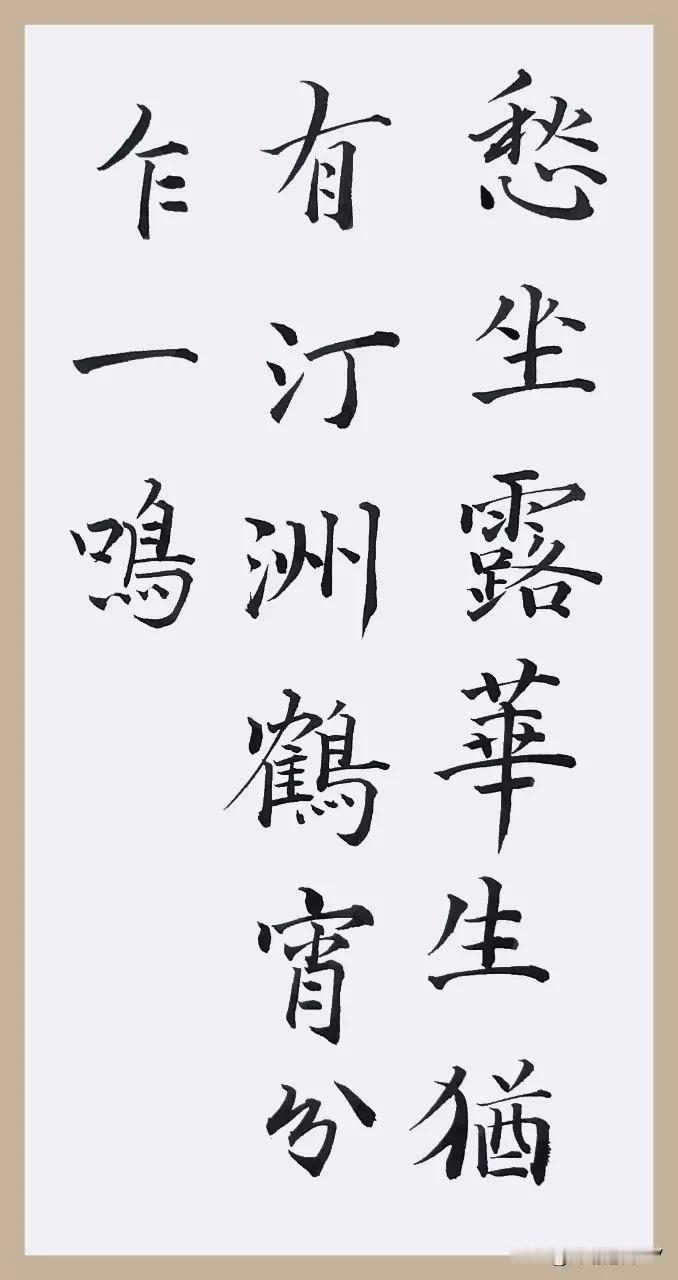 愁坐露華生猶
有汀洲鶴宵分
乍一鳴